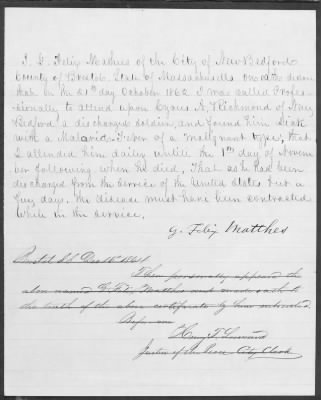 I, G. Felix Matthes of the City of New Bedford
County of Bristol State of Massachusetts on oath
that on the 21st day October 1862 I was called Profes-
sionally to attend upon Cyrus A. Richmond of New
Bedford a discharged soldier, and found him Sick
with a Malarid Fever of a malignant type, that
I attended him dailey untile the 1st day of Novem
ber following when he died. That as he had been
discharged from the service of the United States but a
few days, the disease must have been contracted
while in the service.
G. Felix Matthes
Bristol SS Dec 16th 1864
Then personally appeared the
above named G. Felix Matthes and made oath to
the truth of the above certificate by him subscribed.
Before me
Henry T. Leonard
Justice of the Peace City Clerk